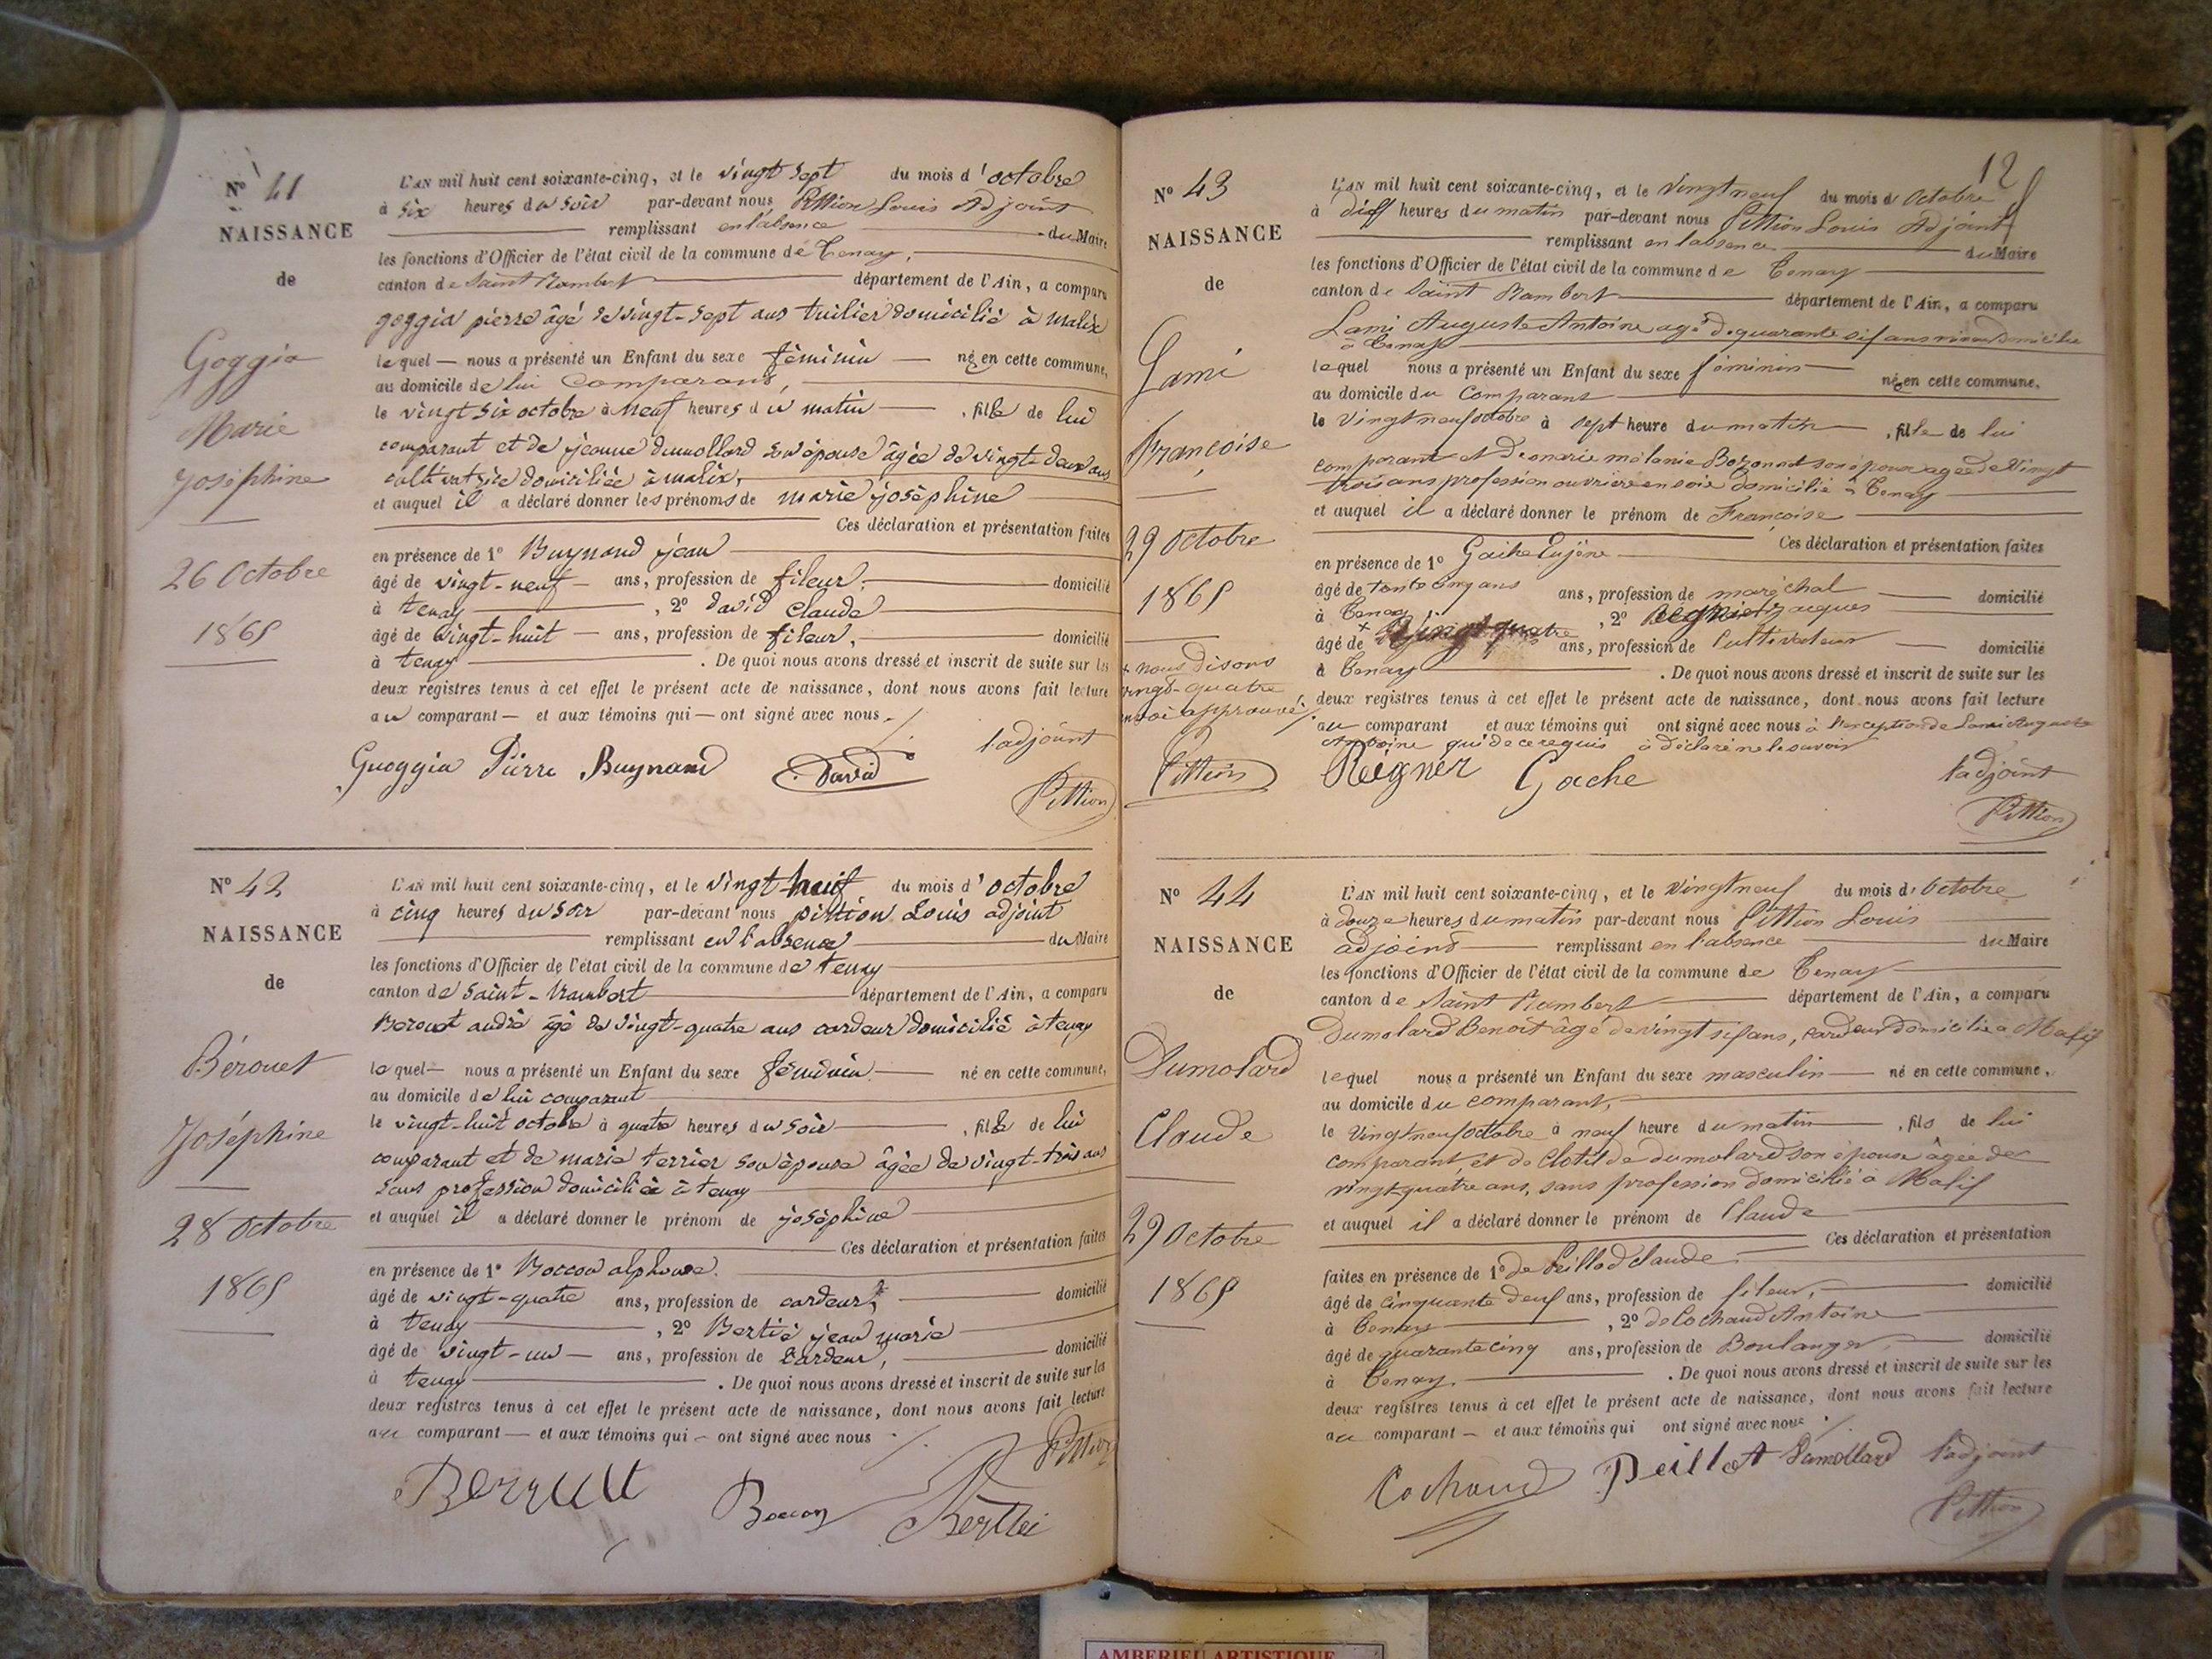 N° 41
NAISSANCE
de
Goggia
Marie
Joséphine
26 Octobre
1865
L'AN mil huit cent soixante-cinq, et le vingt sept du mois d'octobre
à six heures du soir par-devant nous Pittion Louis Adjoint
remplissant en l'absence du Maire
les fonctions d'Officier de l'état civil de la commune de Tenay,
canton de Saint Rambert département de l'Ain, a comparu
goggia pierre âgé de vingt-sept ans tuilier domicilié à malix
lequel nous a présenté un Enfant du sexe féminin née en cette commune,
au domicile de lui comparant,
le vingt six octobre à neuf heures du matin, fille de lui
comparant et de jeanne dumollard son épouse âgée de vingt-deux ans
cultivatrice domiciliée à malix,
et auquel il a déclaré donner les prénoms de marie joséphine
Ces déclaration et présentation faites
en présence de 1° Buynand jean
âgé de vingt-neuf ans, profession de fileur, domicilié
à tenay, 2° david claude
âgé de vingt-huit ans, profession de fileur, domicilié
à tenay. De quoi nous avons dressé et inscrit de suite sur les
deux registres tenus à cet effet le présent acte de naissance, dont nous avons fait lecture
au comparant et aux témoins qui ont signé avec nous
l'adjoint
Guoggia Pierre Buynand David
Pittion
N° 42
NAISSANCE
de
Bérouet
Joséphine
28 Octobre
1865
L'AN mil huit cent soixante-cinq, et le vingt huit du mois d'octobre
à cinq heures du soir par-devant nous pittion Louis adjoint
remplissant en l'absence du Maire
les fonctions d'Officier de l'état civil de la commune de tenay
canton de saint-rambert département de l'Ain, a comparu
Berouet andré âgé de vingt-quatre ans cardeur domicilié à tenay
lequel nous a présenté un Enfant du sexe féminin né en cette commune,
au domicile de lui comparant
le vingt-huit octobre à quatre heures du soir, fille de lui
comparant et de marie terrier son épouse âgée de vingt-trois ans
sans profession domiciliée à tenay
et auquel il a déclaré donner le prénom de joséphine
Ces déclaration et présentation faites
en présence de 1° Boccon alphonse
âgé de vingt-quatre ans, profession de cardeur, domicilié
à tenay, 2° Bertié jean marie
âgé de vingt-un ans, profession de cardeur, domicilié
à tenay. De quoi nous avons dressé et inscrit de suite sur les
deux registres tenus à cet effet le présent acte de naissance, dont nous avons fait lecture
au comparant et aux témoins qui ont signé avec nous
Pittion
Boccon
12
N° 43
NAISSANCE
de
Lami
Françoise
29 Octobre
1865
+ nous disons
vingt-quatre
envoi approuvé
Pittion
L'AN mil huit cent soixante-cinq, et le vingt neuf du mois d'Octobre
à dix heures du matin par-devant nous Pittion Louis Adjoint
remplissant en l'absence du Maire
les fonctions d'Officier de l'état civil de la commune de Tenay
canton de Saint Rambert département de l'Ain, a comparu
Lami Auguste Antoine agé de quarante six ans domicilié
à Tenay
lequel nous a présenté un Enfant du sexe féminin née en cette commune.
au domicile du Comparant
le Vingt neuf octobre à sept heure du matin, fille de lui
comparant et de marie mélanie Bozonnet son épouse agée de Vingt
trois ans profession ouvrière en soie domicilié à Tenay
et auquel il a déclaré donner le prénom de Françoise
Ces déclaration et présentation faites
en présence de 1° Gache Eujène
âgé de trente cinq ans ans, profession de maréchal domicilié
à Tenay, 2° Regnier Jacques
âgé de + vingt quatre ans, profession de Cultivateur domicilié
à Tenay. De quoi nous avons dressé et inscrit de suite sur les
deux registres tenus à cet effet le présent acte de naissance, dont nous avons fait lecture
au comparant et aux témoins qui ont signé avec nous à l'exception de Lami Auguste
Antoine qui de ce requis à déclaré ne le savoir
Reignér Gache l'adjoint
Pittion
N° 44
NAISSANCE
de
Dumolard
Claude
29 Octobre
1865
L'AN mil huit cent soixante-cinq, et le Vingt neuf du mois d'Octobre
à douze heures du matin par-devant nous Pittion Louis
adjoint remplissant en l'absence du Maire
les fonctions d'Officier de l'état civil de la commune de Tenay
canton de Saint Rambert département de l'Ain, a comparu
Dumolard Benoit âgé de vingt six ans, cardeur domicilié a Malix
lequel nous a présenté un Enfant du sexe masculin né en cette commune,
au domicile du comparant,
le Vingt neuf octobre à neuf heure du matin, fils de lui
comparant, et de Clotilde dumolard son épouse âgée de
vingt-quatre ans, sans profession domicilié à Malix
et auquel il a déclaré donner le prénom de Claude
Ces déclaration et présentation
faites en présence de 1° de Peillod Claude
âgé de cinquante deux ans, profession de fileur, domicilié
à Tenay, 2° de Cochaud Antoine
âgé de quarante cinq ans, profession de Boulanger, domicilié
à Tenay. De quoi nous avons dressé et inscrit de suite sur les
deux registres tenus à cet effet le présent acte de naissance, dont nous avons fait lecture
au comparant et aux témoins qui ont signé avec nous
Cochaud Peillot Dumollard l'adjoint
Pittion
AMBERIEU ARTISTIQUE